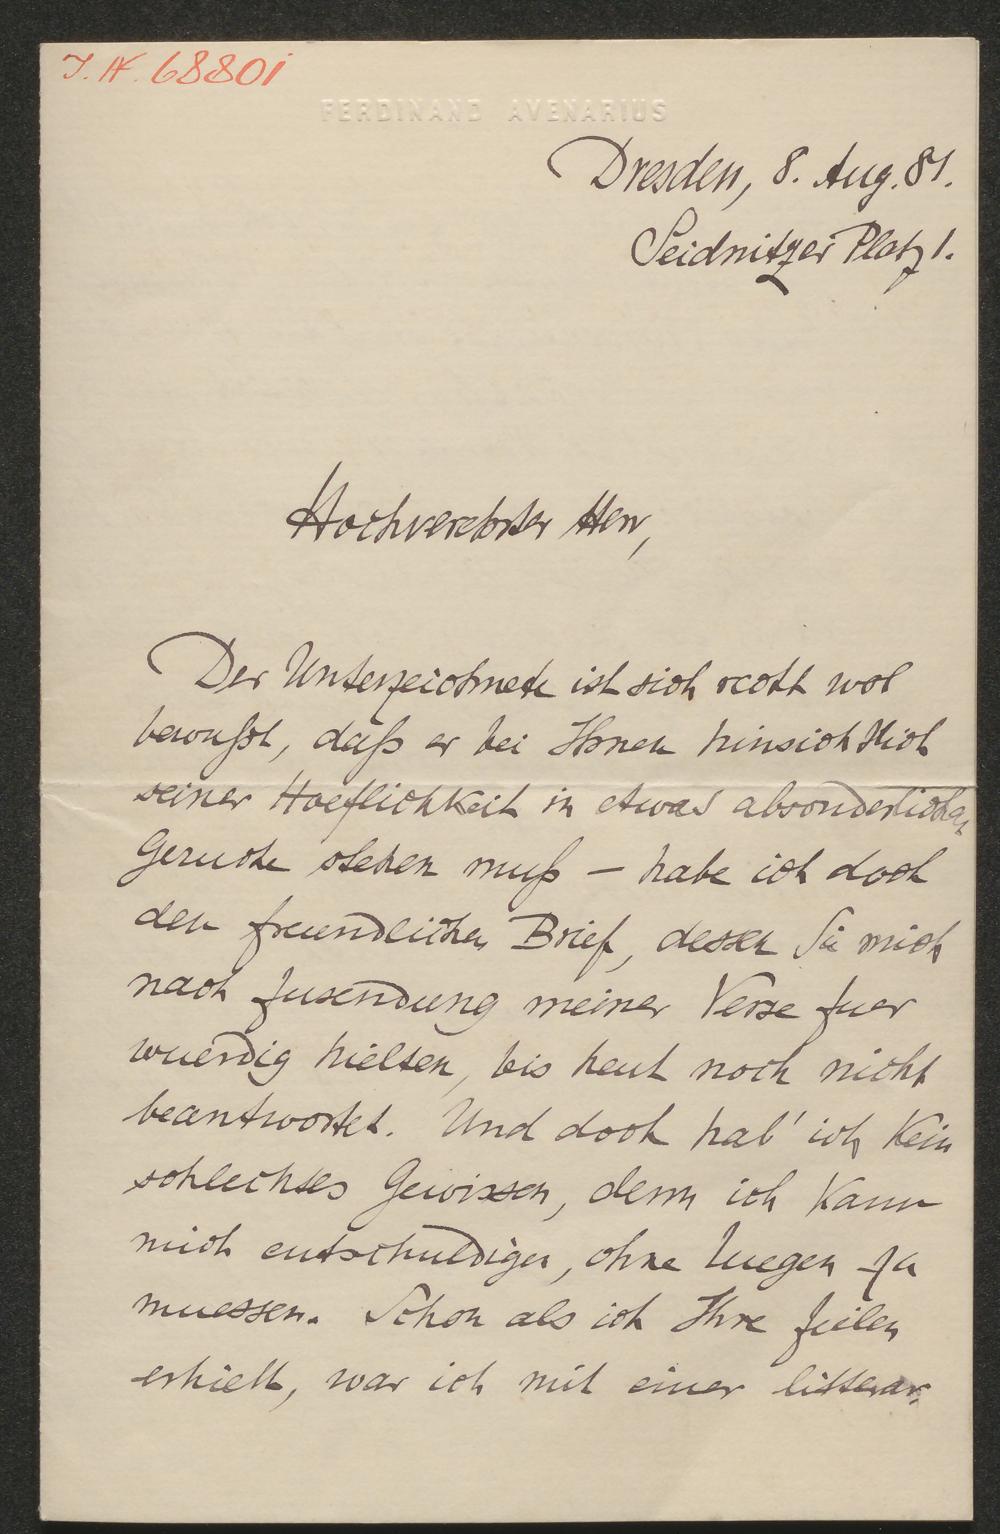 I. N. 68801
FERDINAND AVENARIUS
Dresden, 8. Aug. 81.
Seidnitzer Platz 1.
Hochverehrter Herr,
Der Unterzeichnete ist sich recht wol
bewußt, daß er bei Ihnen hinsichtlich
seiner Hoeflichkeit in etwas absonderlichem
Geruche stehen muß – habe ich doch
den freundlichen Brief, dessen Sie mich
nach Zusendung meiner Verse fuer
wuerdig hielten, bis heut noch nicht
beantwortet. Und doch hab' ich kein
schlechtes Gewissen, denn ich kann
mich entschuldigen, ohne luegen zu
muessen. Schon als ich Ihre Zeilen
erhielt, war ich mit einer litterar-